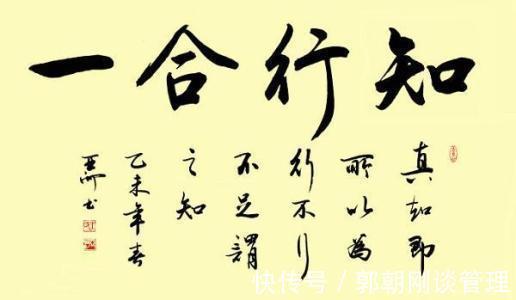 知行合一
真知即
所以為
行不行
不足謂
之知
乙未年春
书
快传号 / 郭朝刚谈管理